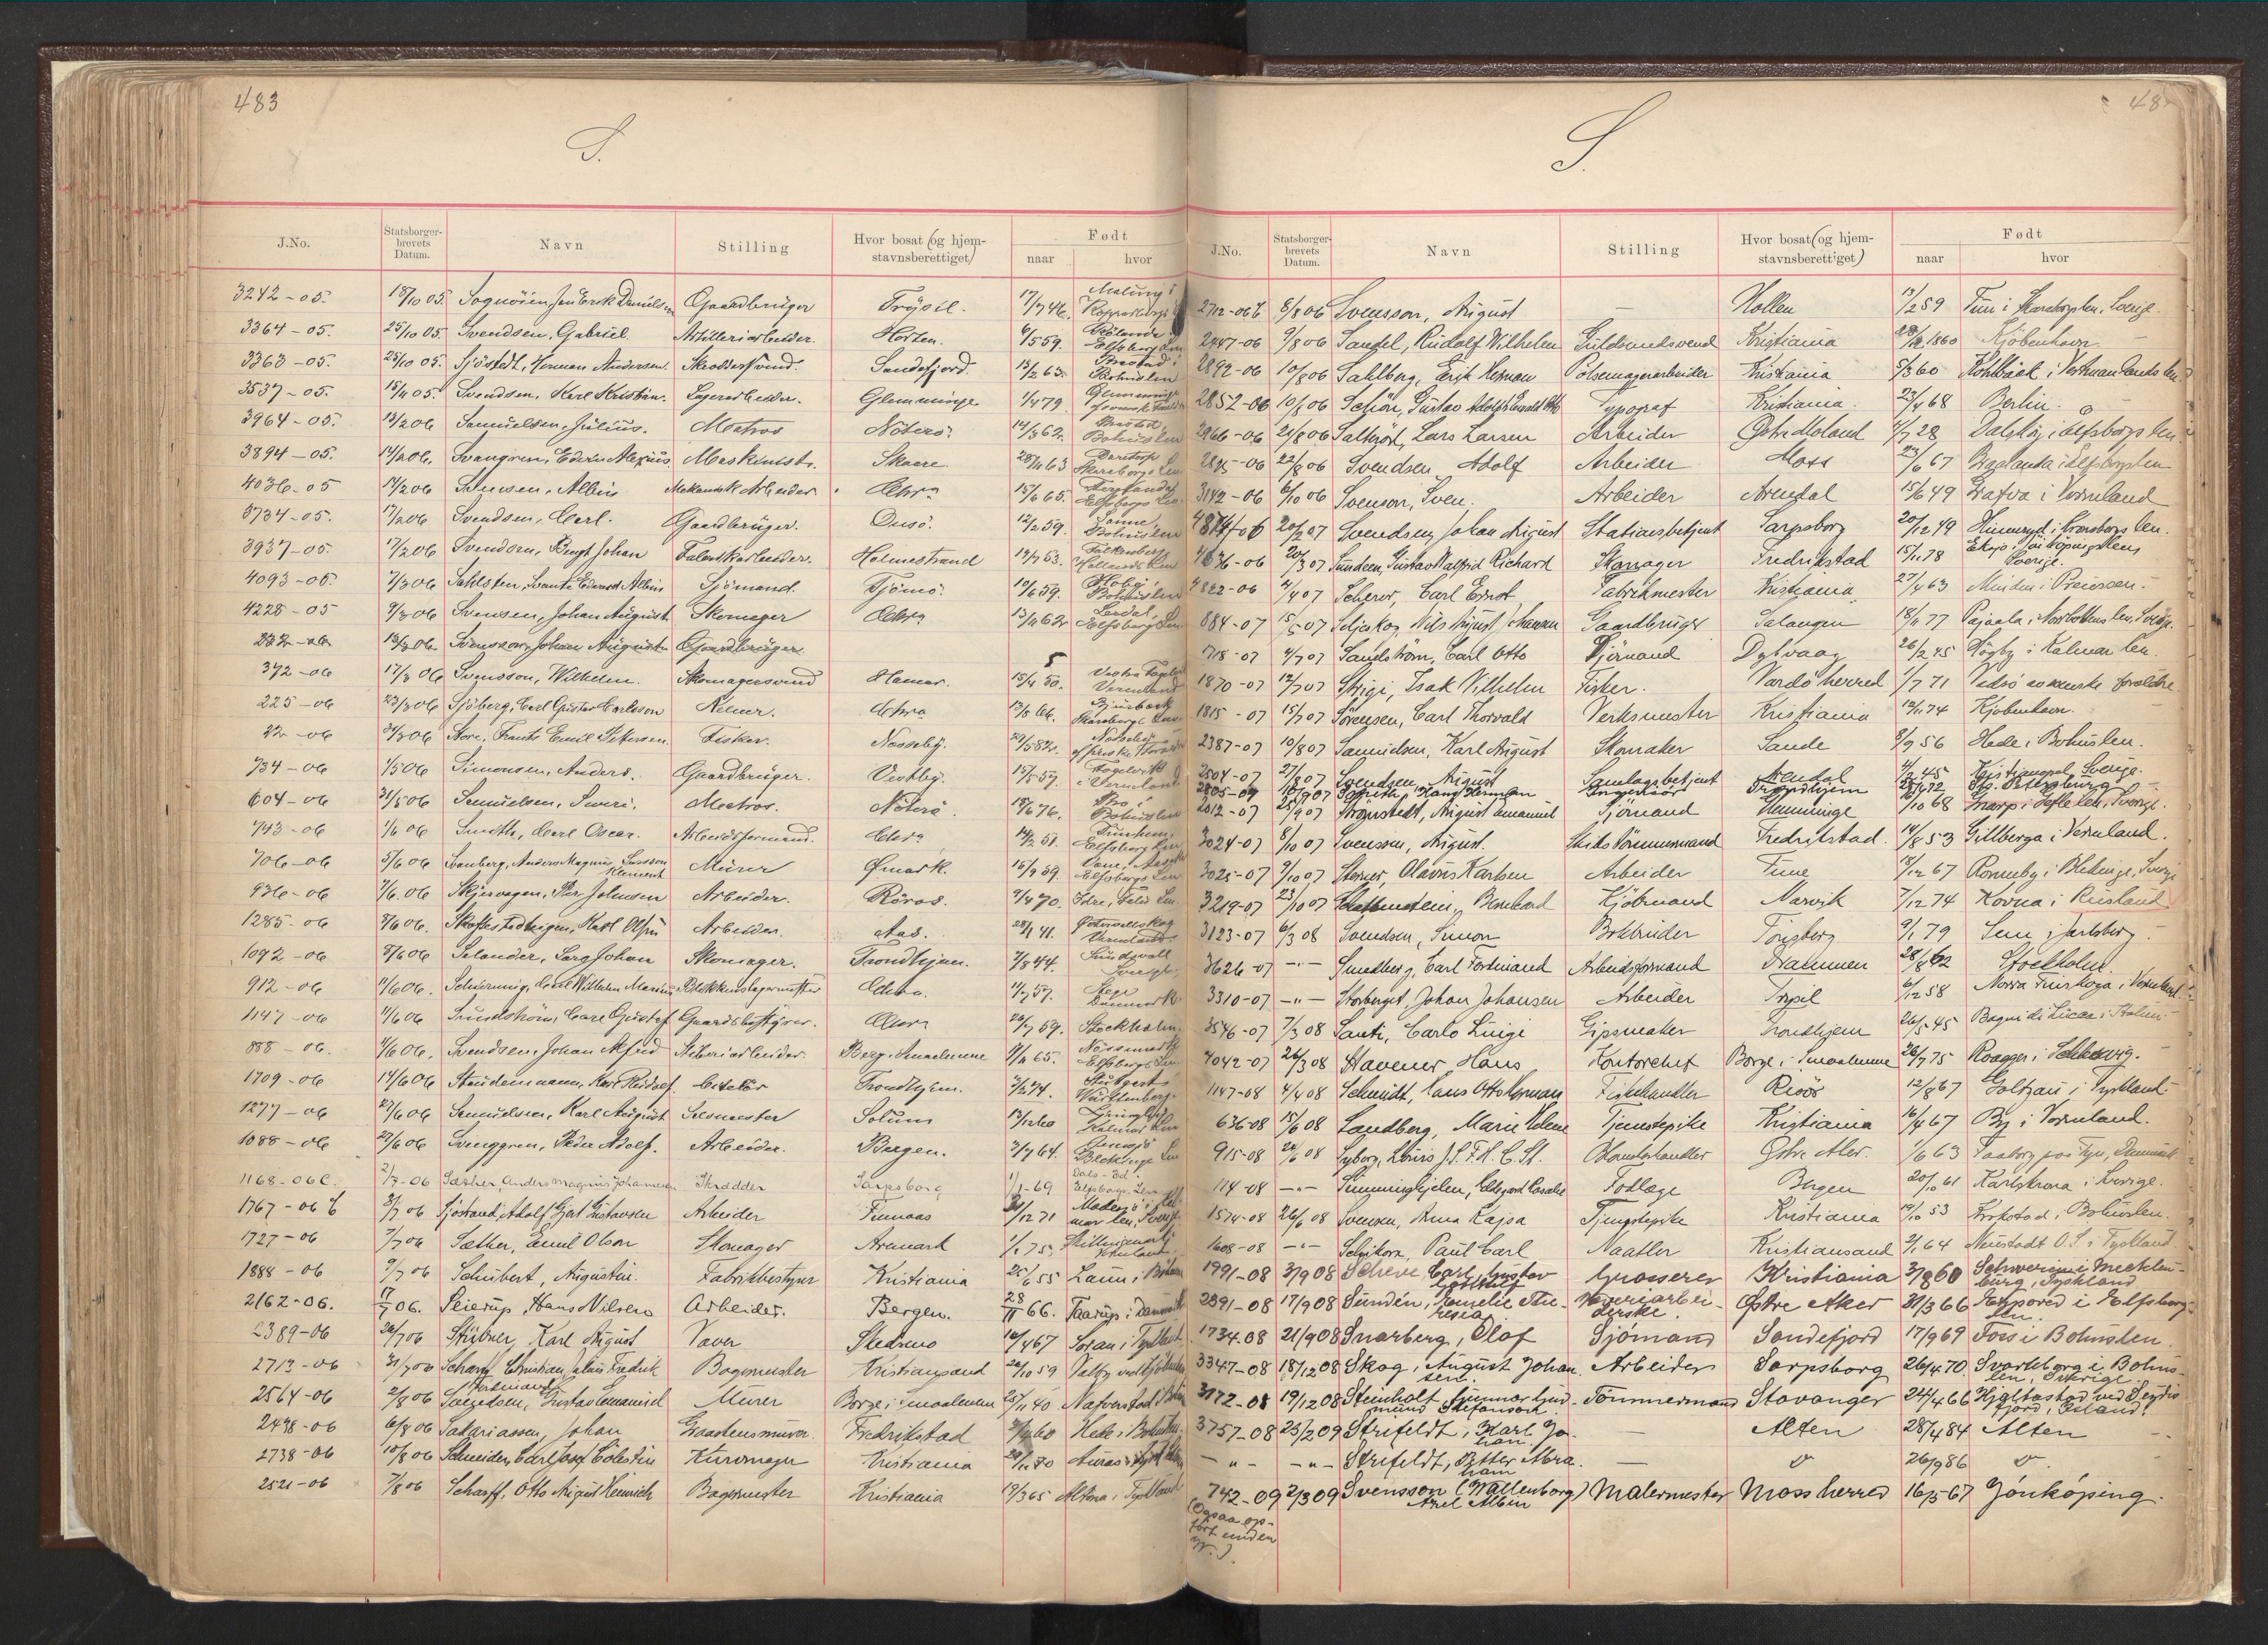 483
S.
J.No. Statsborger-brevets Datum. Navn Stilling Hvor bosat (og hjem-stavnsberettiget) Født naar hvor
3242-05. 18/10 05. Gaardbruger Trysil. 17/7 46. Malung i
3364-05. 25/10 05. Svendsen, Gabriel. Artilleriarbeider. Horten. 6/5 59.
3363-05. 25/10 05. Sjöstedt, Herman Andersen. Sandefjord. 13/2 63. Brastad i Bohuslen
3537-05. 15/11 05. Svendsen, Karl Kristian. Lagerarbeider. Glemminge 1/4 79. Glemminge
3964-05. 13/2 06 Samuelsen, Julius. Matros Nøterø. 14/3 62. Bohuslen
3894-05. 14/2 06. Svangren, Edvin Alexius Maskinist. Skaare. 28/11 63 Skaraborgs Len
4036-05 14/2 06 Svensen, Albin Mekanisk Arbeider. 15/6 65. Elfsborgs Len
3734-05. 17/2 06 Svendsen, Carl. Gaardbruger. Onsø. 12/2 59. Sanne, Bohuslen
3937-05. 17/2 06 Svendsen, Bengt Johan Fabrikarbeider. Holmestrand 13/7 53. Falkenberg Hallands Len
4093-05. 7/3 06 Sahlsten, Svante Edvard Albin Sjömand. Tjömö. 10/6 39. Bohuslen
4228-05 9/3 06 Svensen, Johan August Skomager 13/11 62 Elfsborgs Len
232-06 13/3 06 Svensson, Johan August Gaardbruger
372-06 17/3 06 Svensson, Wilhelm. Skomagersvend Hamar. 15/4 50. Vermland
225-06 23/3 06 Sjöberg, Carl Gustav Carlsson 13/8 66. Skaraborgs Len
22-06 31/3 06 Store, Frants Emil Petersen Fisker. Nesseby. 29/5 82. Nesseby
734-06 1/5 06 Simonsen, Anders. Gaardbruger. Vestby. 15/5 57. i Vermland
604-06 31/5 06 Samuelsen, Severi. Matros. Nøterø 18/6 76. Bro i Bohuslen
743-06 1/6 06 Smith, Carl Oscar. Arbeidsformand. 14/2 51. Elfsborg Len
706-06 5/6 06 Svanberg, Anders Magnus Svensson Klement Murer Ømark. 15/9 39. Elfsborgs Len
936-06 7/6 06 Skjervagen, Per Johnsen Arbeider. Röros. 9/4 70. Idre,
1285-06 8/6 06. Karl Olsen Arbeider. Aas. 28/1 41. Vermland
1092-06 8/6 06 Selander, Lars Johan Skomager. Trondhjem. 7/8 44. Sundsvall Sverige
912-06 11/6 06. Carl Wilhelm Marius Blikkenslagermester 11/7 57. Stege Danmark
1147-06 11/6 06 Sundström, Carl Gustaf Gaardsbestyrer. 26/7 59. Stockholm
888-06. 11/6 06. Svendsen, Johan Alfred Berg, Smaalenene 9/11 65. Elfsborgs Len
1709-06 14/6 06 Steudemann, Karl Rudolf. Ciselør Trondhjem. 2/2 74. Stuttgart Würtemberg
1277-06 27/6 06 Samuelsen, Karl August Solum 13/12 60 Kalmar Len
1088-06 27/6 06 Svenggren, Peder Adolf. Arbeider. Bergen. 3/7 64. Blekinge Len
1168-06C. 2/7-06 Sæther, Anders Magnus Johannesen Skrædder Sarpsborg 1/1-69 Dals-Ed Elfsborgs Len
1767-06 b 3/7 06 Sjöstrand, Adolf Gert Gustavsen Arbeider Finnaas 31/12 71 Kalmar len, Sverige
1727-06 7/7 06 Sæther, Emil Olsen Skomager Aremark 1/1 75
1888-06 9/7 06 Schubert, Augustin. Fabrikbestyrer Kristiania 25/6 55 Laun i Böhmen
2162-06. 17/7 06. Seierup, Hans Nilsen Arbeider. Bergen. 28/11 66. Taarup i Danmark
2389-06 26/7 06 Stübner, Karl August Væver Skedsmo 16/4 67 Soran i Tyskland
2713-06 31/7 06 Scharff, Christian Julius Fredrik Ferdinand Bagermester Kristiansand 26/10 59 Valby ved Kjöbenhavn
2564-06 2/8 06 Gustav Emanuel Murer Borge i Smaalenene 25/11 40 Nafverstad Bohuslen
2498-06 6/8 06 Sakariassen, Johan Graastensmurer. Fredrikstad Hede i Bohuslen
2738-06 10/8 06 Schneider, Carl Josef Cölestin Kurvmager Kristiania 29/11 70
2521-06 7/8 06 Scharff, Otto August Heinrich Bagermester Kristiania 19/3 65 Altona i Tyskland
48
S.
J.No. Statsborger-brevets Datum. Navn Stilling Hvor bosat (og hjem-stavnsberettiget) Født naar hvor
2712-06b 8/8 06 Svensson, August — Hollen 13/2 59 Tun i Skaraborgslen, Sverige.
2447-06 9/8 06 Sandel, Rudolf Wilhelm Guldsmedsvend Kristiania 28/12 1860 Kjöbenhavn. —
2892-06 10/8 06 Sahlberg, Erik Herman Pölsemagerarbeider Kristiania 5/3 60 Kohlbäck i Vestmanlands len.
2852-06 10/8 06 Schön, Gustav Adolf Ewald Otto Typograf Kristiania. 23/4 68 Berlin. —
2966-06 21/8 06 Salteröd, Lars Larsen Arbeider Østre Moland 4/7 28 Dalskog i Elfsborgs len.
2895-06 22/8 06 Svendsen, Adolf Arbeider Moss 23/6 67 i Elfsborgslen
3142-06 6/10 06 Svenson, Sven. Arbeider Arendal 15/6 49 Grafva i Vermland
4874-06 20/2 07 Svendsen, Johan August Stationsbetjent Sarpsborg 20/12 49 Hinneryd i Kronobergs len.
4636-06 20/3 07 Sundeen, Gustav Valfrid Richard Skomager Fredrikstad 15/11 78 Eksjö i Jönköpingslen, Sverige.
4822-06 4/4 07 Scherer, Carl Ernst Fabrikmester Kristiania 27/4 63 Minden i Preussen.
884-07 15/5 07 Seljeskog, Nils August Johansen Gaardbruger Salangen 18/11 77 Pajaala i Norbottens len, Sverige
1718-07 4/7 07 Sandström, Carl Otto Sjömand Dybvaag 26/2 45 Högby i Kalmar len.
1870-07 12/7 07 Strigi, Isak Vilhelm Fisker. Vardö herred 1/7 71 Vadsö av svenske forældre.
1815-07 15/7 07 Sörensen, Carl Thorvald Verksmester Kristiania 12/11 74 Kjöbenhavn.
2387-07 10/8 07 Samuelsen, Karl August Skomaker Sande 8/9 56 Hede i Bohuslen.
2504-07 27/8 07 Svendsen, August Samlagsbetjent Arendal 4/2 45 Kristianopel, Sverige.
2805-07 10/9 07 Hans Herman Trondhjem 25/4 72 St. Petersburg
2012-07 25/9 07 Strömstedt, August Emanuel Sjömand Glemminge 16/10 68 Gnarp i Gefle len, Sverige.
3024-07 8/10 07 Svensson, August. Fredrikstad. 14/8 53 Gillberga i Vermland.
3025-07 9/10 07 Sterner, Olavus Karlsen Arbeider Tune 18/12 67 Ronneby i Blekinge, Sverige
3219-07 23/10 07 Bernhard Kjöbmand Narvik 7/12 74 Kovna i Rusland
3123-07 6/3 08 Svendsen, Simon Bokbinder Tönsberg 9/1 79 Sem i Jarlsberg.
3626-07 —"— Smedberg, Carl Ferdinand Arbeidsformand Drammen 28/8 62 Stockholm.
3310-07 —"— Storberget, Johan Johansen Arbeider Trysil 6/12 58 Norra Finskoga i Vermland
3546-07 7/3 08 Santi, Carlo Luigi Gipsmaker Trondhjem 26/5 45 Bagni di Lucca i Italien.
4042-07 26/3 08 Stavener, Hans Kontorchef Borge i Smaalenene 26/7 75 Roagger i Schleswig.
1147-08 4/4 08 Schmidt, Hans Otto Herman Fiskehandler Risör 12/8 67 i Tyskland
636-08 15/6 08 Landberg, Marie Helene Tjenestepike Kristiania 16/4 67 By i Vermland.
915-08 24/6 08 Syberg, Louis J. S. F. H. C. St. Blomsterhandler Østre Aker. 1/6 63 Faaborg paa Fyn, Danmark
114-08 —"— Simminghjelm, Edegard Rosalie Fodlæge Bergen 20/10 61 Karlskrona i Sverige.
1574-08 26/6 08 Svensen, Anna Kajsa Tjenestepike Kristiania 19/10 53 Krokstad i Bohuslen.
1608-08 —"— Schikora, Paul Carl Naatler Kristiansand 2/1 64 Neustadt O.S. i Tyskland
1991-08 3/9 08 Scheve, Carl Gustav Gotthilf Grosserer Kristiania 3/8 60 Schwerin i Mecklenburg, Tyskland
2391-08 17/9 08 Sundén, Emelie Theresia Væveriarbeiderske. Østre Aker 31/3 66 i Elfsborgs len.
1734-08 21/9 08 Snarberg, Olaf Sjömand Sandefjord 17/9 69 Foss i Bohuslen
3347-08 18/12 08 Skog, August Johansen. Arbeider Sarpsborg 26/4 70. Svarteborg i Bohuslen, Sverige.
3172-08 19/12 08 Steinholt, Gunnar Ludmund Stefansson Tömmermand Stavanger 24/4 66 Hjaltastad ved Seydisfjord, Island.
3757-08 23/2 09 Strifeldt, Karl Johan — Alten 28/4 84 Alten
—"— —"— Strifeldt, Petter Abraham — 26/9 86
742-09 2/3 09 Svensson (Wallenborg) Axel Albin Malermester Moss herred 16/5 67 Jönköping.
(Ogsaa opført under W.)